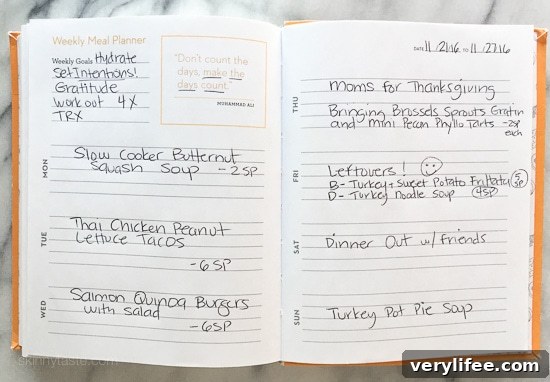 Weekly Meal Planner
Weekly Goals Hydrate
Set Intentions!
Gratitude
Work out 4x
TRX
"Don't count the
days, make the
days count."
MUHAMMAD ALI
MON
Slow Cooker Butternut
Squash Soup - 2SP
TUE
Thai Chicken Peanut
Lettuce Tacos
- 6SP
WED
Salmon Quinoa Burgers
with salad
- 6SP
skinnytaste.com
DATE 11/21/16 TO 11/27/16
THU
Moms for Thanksgiving
Bringing Brussels Sprouts Gratin
and mini Pecan Phyllo Tarts -2x
each
FRI
Leftovers!
B- Turkey + Sweet Potato Frittata 5
SP
D- Turkey Noodle Soup 4SP
SAT
Dinner Out w/ friends
SUN
Turkey Pot Pie Soup
verylifee.com